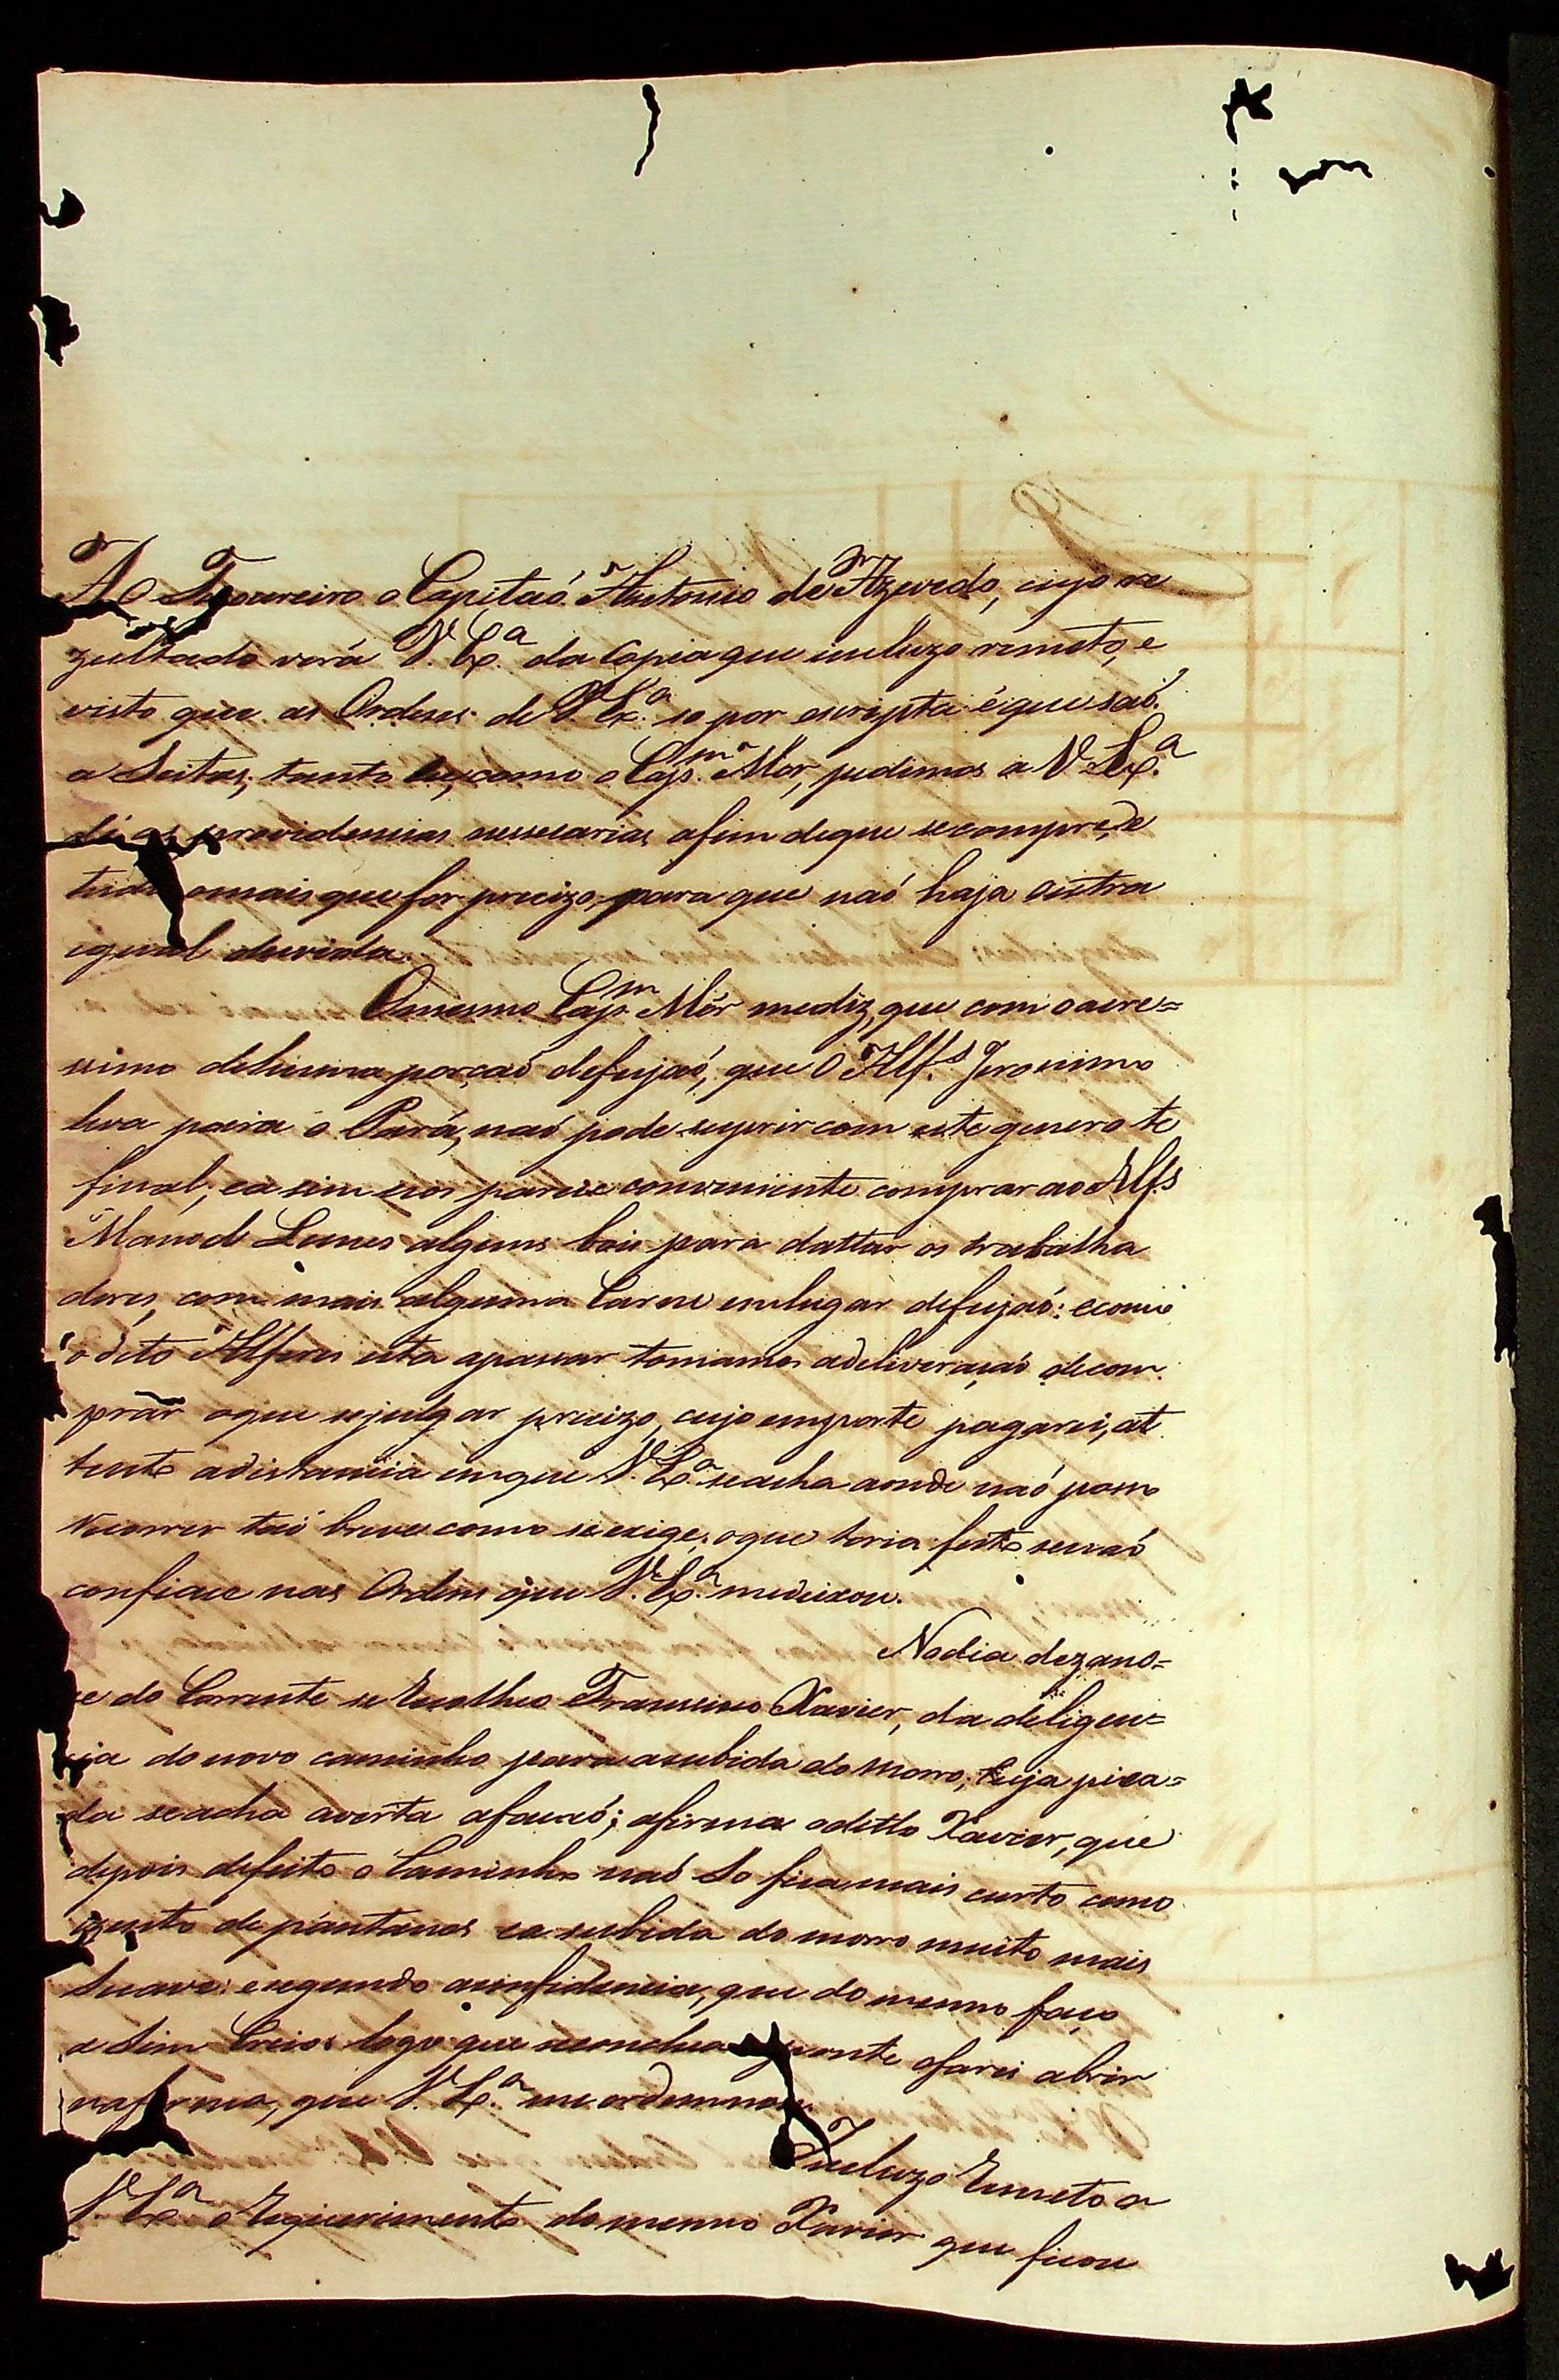 Ao Tezoureiro o Capitaó Antonio de Azevedo, cujo re
zultado verá V. Ex.ª da Copia que incluzo remeto, e
visto que as Ordenes de V. Ex.ª so por escripta é que saó
a Seitas, tanto eu, como o Cap.m Mor, pedimos a V. Ex.ª
dê as providencias nessecarias afim deque se compre, de
tudo omais que for precizo, para que naó haja outra
igual duvida.
Omesmo Cap.m Mór mediz, que com o acre=
ssimo dehuma porçaó defejaó, que O Alf.s Jeronimo
leva para o Pará, naó pode suprir com este genero te
final; ea sim nos parece conveniente comprar ao Alf.s
Manoel Lemes alguns bois para dattar os trabalha
dores, com mais alguma Carne emlugar defejaó: ecomo
o dito Alferes esta apassar tomamos adeliveraçaó decom
prar oque sejulgar precizo, cujo emporte pagarei, at
tento adistancia emque V. Ex.ª seacha aonde naó posso
recorrer taó breve como se exige; oque teria feito senaó
confiace nas Ordens que V. Ex.ª medeixou.
Nodia dezano=
ve do Corrente se Recolheo Francisco Xavier, da deligen=
cia do novo caminho para asubida do Morro; Cuja pica=
da seacha averta afacaó; afirma oditto Xavier, que
depois defeito o Caminho naó So fica mais curto como
izento de pantanos ea subida do morro muito mais
Suave: esegundo aconfidencia, que do mesmo faço
a Sim Creio: logo que seconclua a ponte ofarei abrir
naforma, que V. Ex.ª me ordennou.
Incluzo Remeto a
V. Ex.ª o Requerimento do mesmo Xavier que ficou